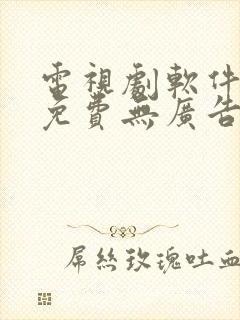 電視劇軟件
免費無廣告
屌絲玫瑰吐血